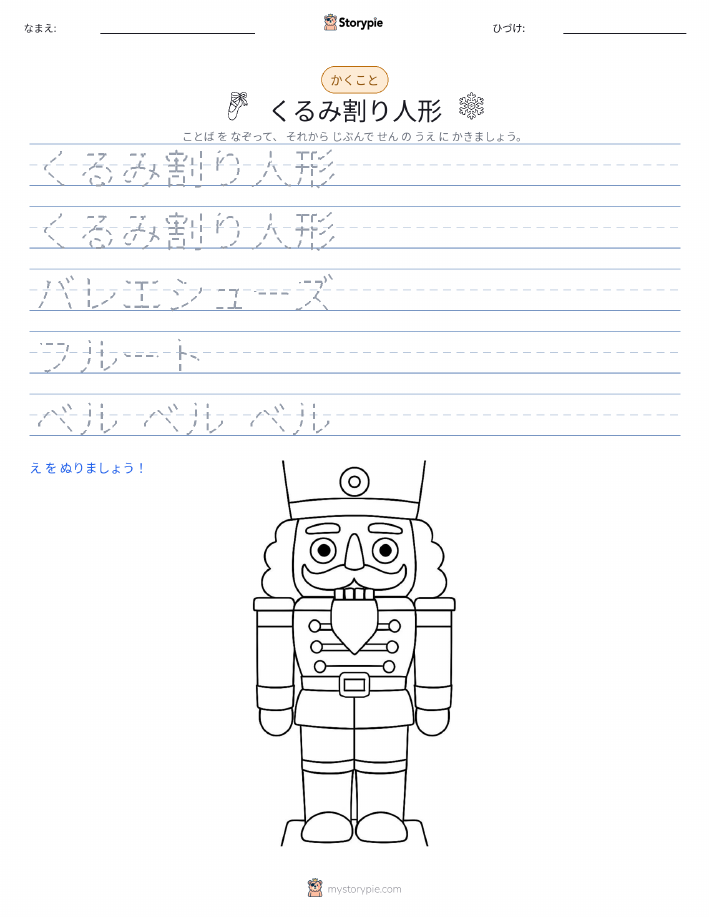 なまえ:
Storypie
ひづけ:
かくこと
くるみ割り人形
ことば を なぞって、 それから じぶんで せん の うえ に かきましょう。
くるみ割り人形
くるみ割り人形
バレエシューズ
フルート
ベル ベル ベル
え を ぬりましょう！
mystorypie.com